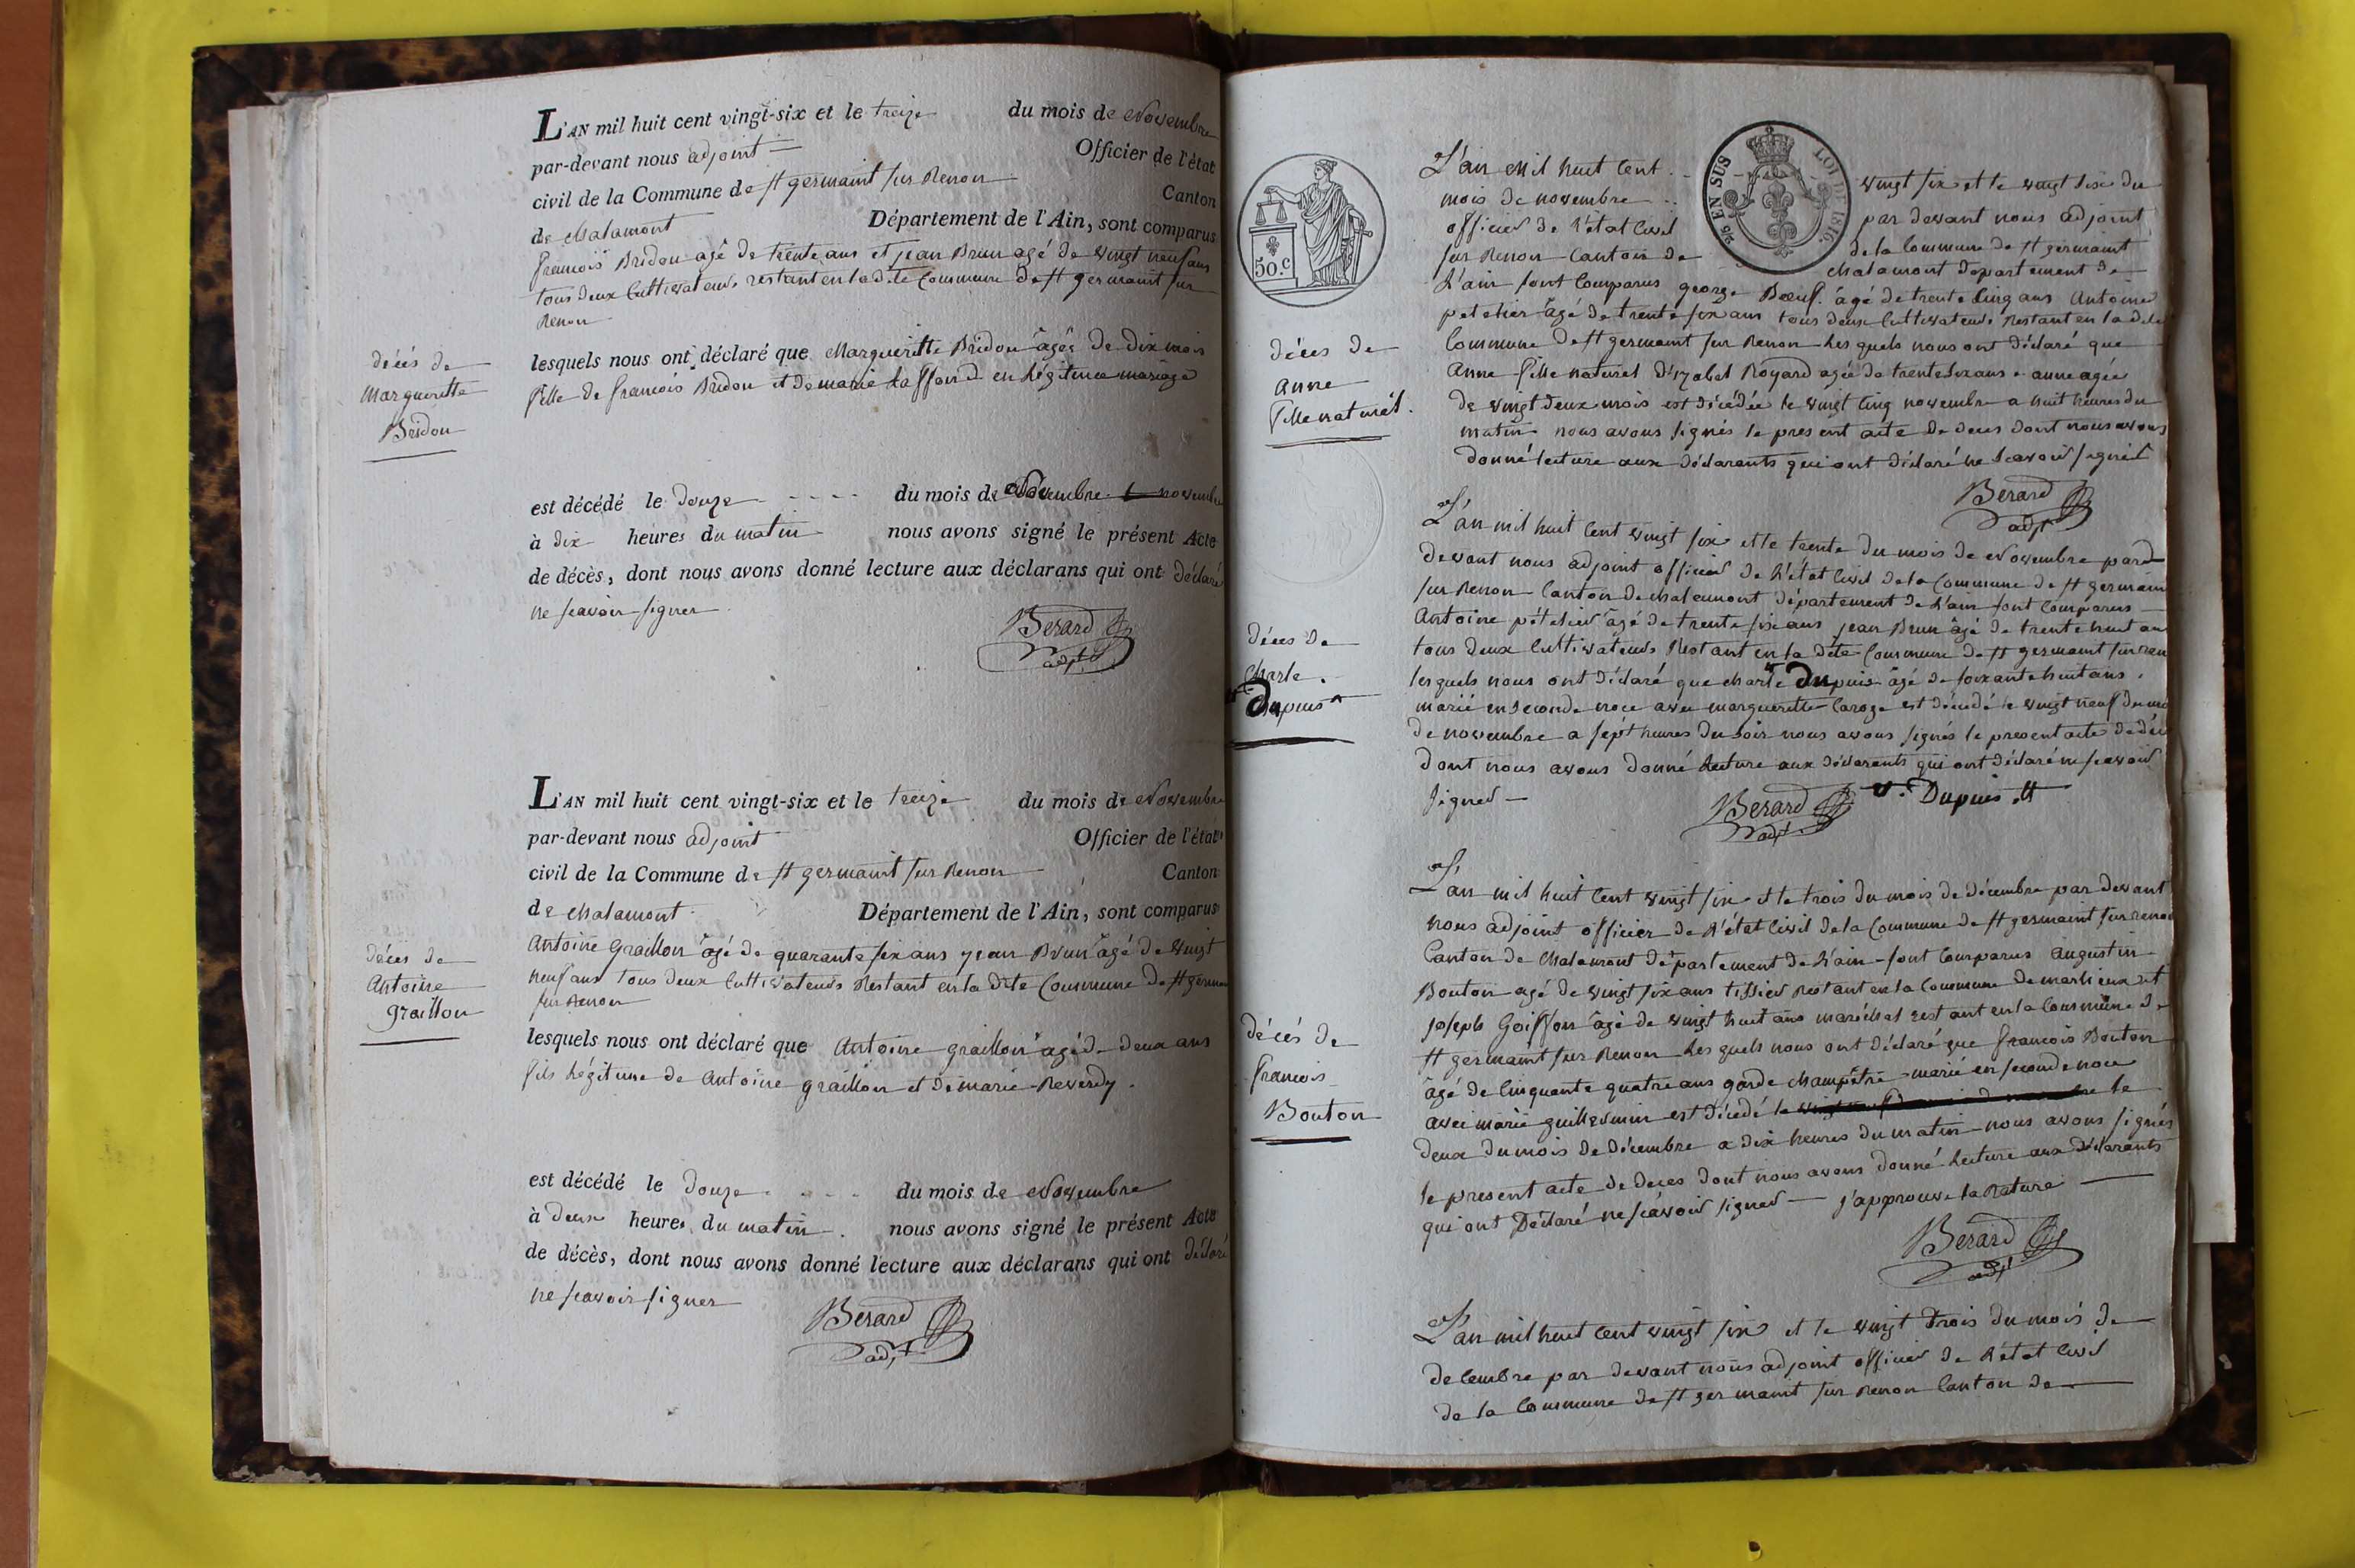 L'AN mil huit cent vingt-six et le treize du mois de Novembre
par-devant nous adjoint Officier de l'état
civil de la Commune de st germaint sur Renon Canton
de chalamont Département de l'Ain, sont comparus
francois Bridon agé de trente ans et jean Brun agé de vingt neuf ans
tous deux Cultivateurs restant en la dite Commune de st germaint sur
Renon
décés de
Margueritte
Bridon
lesquels nous ont déclaré que Margueritte Bridon âgée de dix mois
fille de francois Bridon et de marie Laffond en Légitence mariage
est décédé le douze du mois de Novembre novembre
à dix heures du matin nous avons signé le présent Acte
de décès, dont nous avons donné lecture aux déclarans qui ont déclaré
ne scavoir signer
Berard
adjt
L'AN mil huit cent vingt-six et le treize du mois de Novembre
par-devant nous adjoint Officier de l'état
civil de la Commune de st germaint sur Renon Canton
de chalamont Département de l'Ain, sont comparus
décés de
Antoine
graillon
Antoine Graillon âgé de quarante six ans jean Brun âgé de vingt
neuf ans tous deux Cultivateurs Restant en la dite Commune de st germain
sur Renon
lesquels nous ont déclaré que Antoine graillon agé de deux ans
fils Légitime de Antoine graillon et de marie Reverdy
est décédé le douze du mois de Novembre
à deux heures du matin nous avons signé le présent Acte
de décès, dont nous avons donné lecture aux déclarans qui ont déclaré
ne scavoir signer
Berard
adjt
50.c
2/5 EN SUS LOI DE 1816.
L'an Mil huit Cent vingt six et le vingt six du
mois de novembre par devant nous adjoint
officier de L'état Civil de la Commune de st germaint
sur Renon Canton de chalamont Departement de
L'ain sont Comparus george Boeuf âgé de trente Cinq ans Antoine
petetier âgé de trente six ans tous deux Cultivateurs Restant en la dite
Commune de st germaint sur Renon Lesquels nous ont déclaré que
décés de
Anne
fille naturél.
Anne fille naturel d'izabel Royard agée de trente six ans anne agée
de vingt deux mois est décédée le vingt Cinq novembre a huit heures du
matin nous avons signés le present acte de deces dont nous avons
donné lecture aux déclarants qui ont déclaré ne scavoir signér
Berard
adjt
L'an mil huit Cent vingt six et le trente du mois de Novembre pard
devant nous adjoint officier de L'état Civil de la Commune de st germain
sur Renon Canton de chalamont département de L'ain sont Comparus
décés de
Charle
Dupuis
Antoine pételier âgé de trente six ans jean Brun âgé de trente huit ans
tous deux Cultivateurs Restant en la dite Commune de st germaint sur ren
lesquels nous ont déclaré que charle Dupuis âgé de soixante huit ans
marié en seconde noce avec marguerette Caroge est décédé le vingt neuf du moi
de novembre a sépt heures du soir nous avons signés le present acte de déc
dont nous avons donné lecture aux déclarants qui ont déclaré ne scavoir
signer
Berard
adjt
v. Dupuis
L'an mil huit Cent vingt six et le trois du mois de décembre par devant
nous adjoint officier de L'état Civil de la Commune de st germaint sur renon
Canton de Chalamont département de L'ain sont Comparus Augustin
Bouton agé de vingt six ans tissier Restant en la Commune de marlieux et
décés de
francois
Bouton
joseph Goiffon âgé de vingt huit ans maréchal restant en la Commune de
st germaint sur Renon Lesquels nous ont déclaré que francois Bouton
âgé de Cinquante quatre ans garde champêtre marié en seconde noce
avec marie guillermin est décédé le le
deux du mois de décembre a dix heures du matin nous avons signés
le present acte de deces dont nous avons donné Lecture aux déclarants
qui ont Déclaré ne scavoir signer j'approuve la Rature
Berard
adjt
L'an mil huit Cent vingt six et le vingt trois du mois de
decembre par devant nous adjoint officier de L'état Civil
de la Commune de st germaint sur Renon Canton de